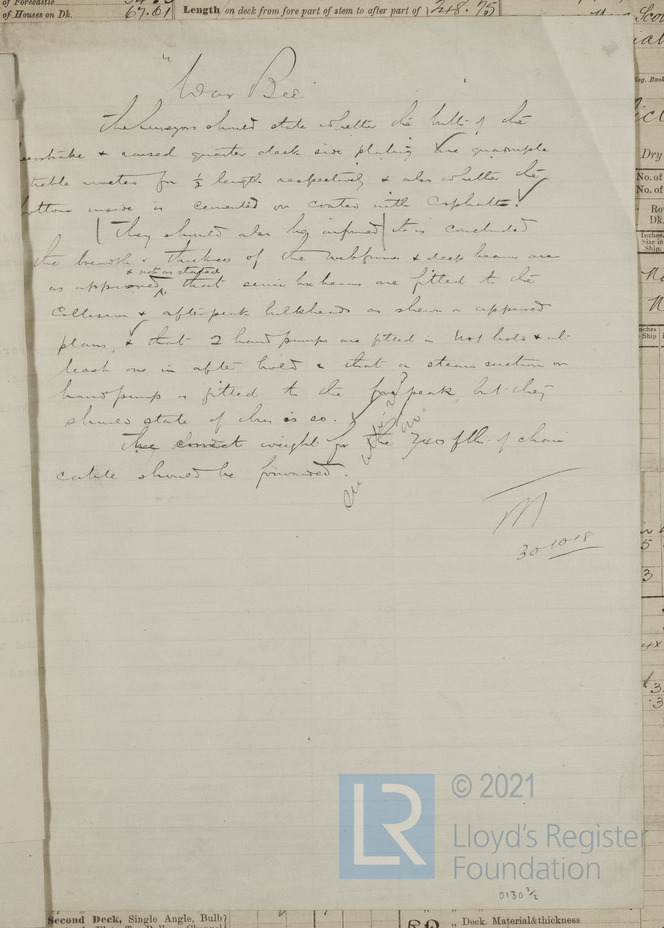 of Houses on Dk. 67.61
Length on deck from fore part of stem to after part of 248.75
"War Bee"
The Surveyors should state whether the butts of the
& raised quarter deck side plating are quadruple
treble riveted for ½ length respectively & also whether the
bottom inside is cemented or coated with Asphalte.
They should also be informed it is concluded
the breadth & thickness of the webframes & deep beams are
& not as stated
as approved, that beams are fitted to the
Collision & afterpeak bulkheads as shewn on approved
plans, & that 2 handpumps are fitted in hold & at
least one in after hold & that a steam suction or
handpump is fitted to the forepeak, but they
should state if this is so.
The correct weight for the 240 fth. of chain
cable should be forwarded.
30-10-18
LR
© 2021
Lloyd's Register
Foundation
0130 3/2
Second Deck, Single Angle, Bulb
Deck. Material & thickness